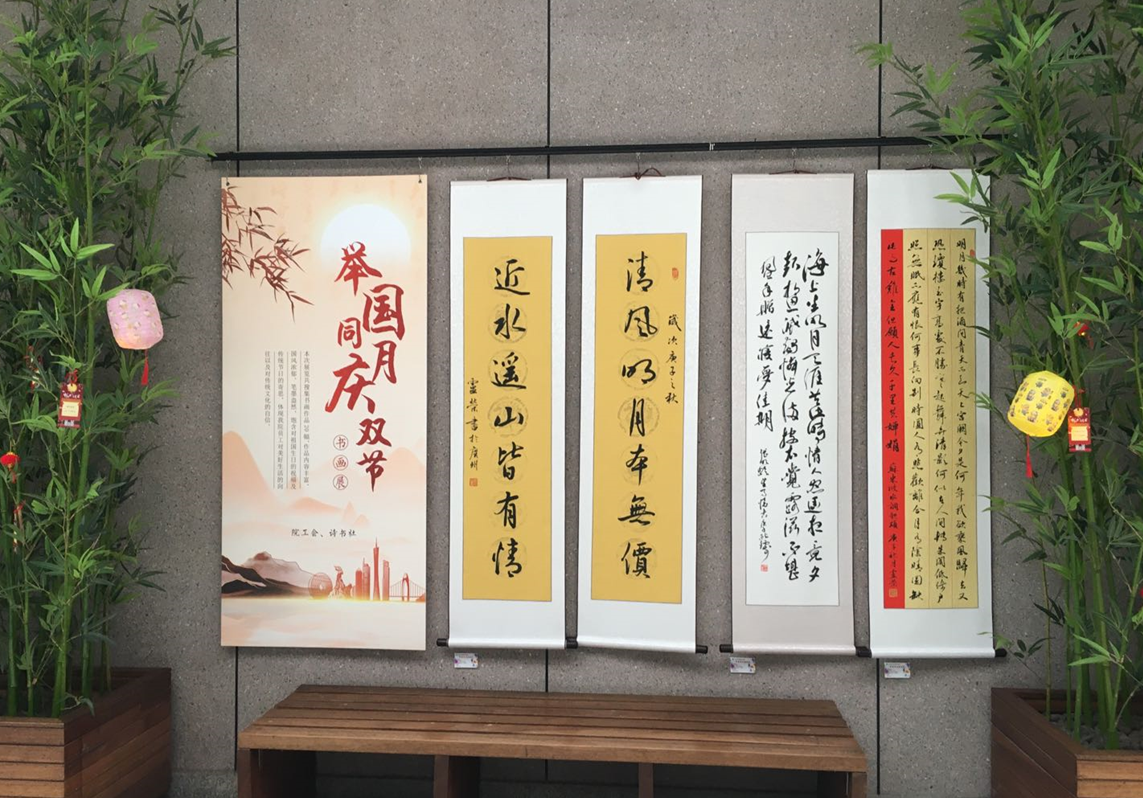 举国
同月
庆、双节
书画展
国风浓郁、笔墨盎然,饱含对祖国生日的祝福及
往以及对传统文化的自信。
院工会、诗书社
歲次庚子之秋
清风明月本無價
近水遥山皆有情
書於廣州
海上生明月天涯共此時情人怨遥夜竟夕
起相思滅燭憐光滿披衣覺露滋不堪
盈手贈還寢夢佳期
明月幾時有把酒問青天不知天上宫闕今夕是何年我欲乘風歸去又
恐瓊樓玉宇高處不勝寒起舞弄清影何似在人間轉朱閣低綺户
照無眠不應有恨何事長向别時圓人有悲歡離合月有陰晴圓缺
此事古難全但願人長久千里共嬋娟